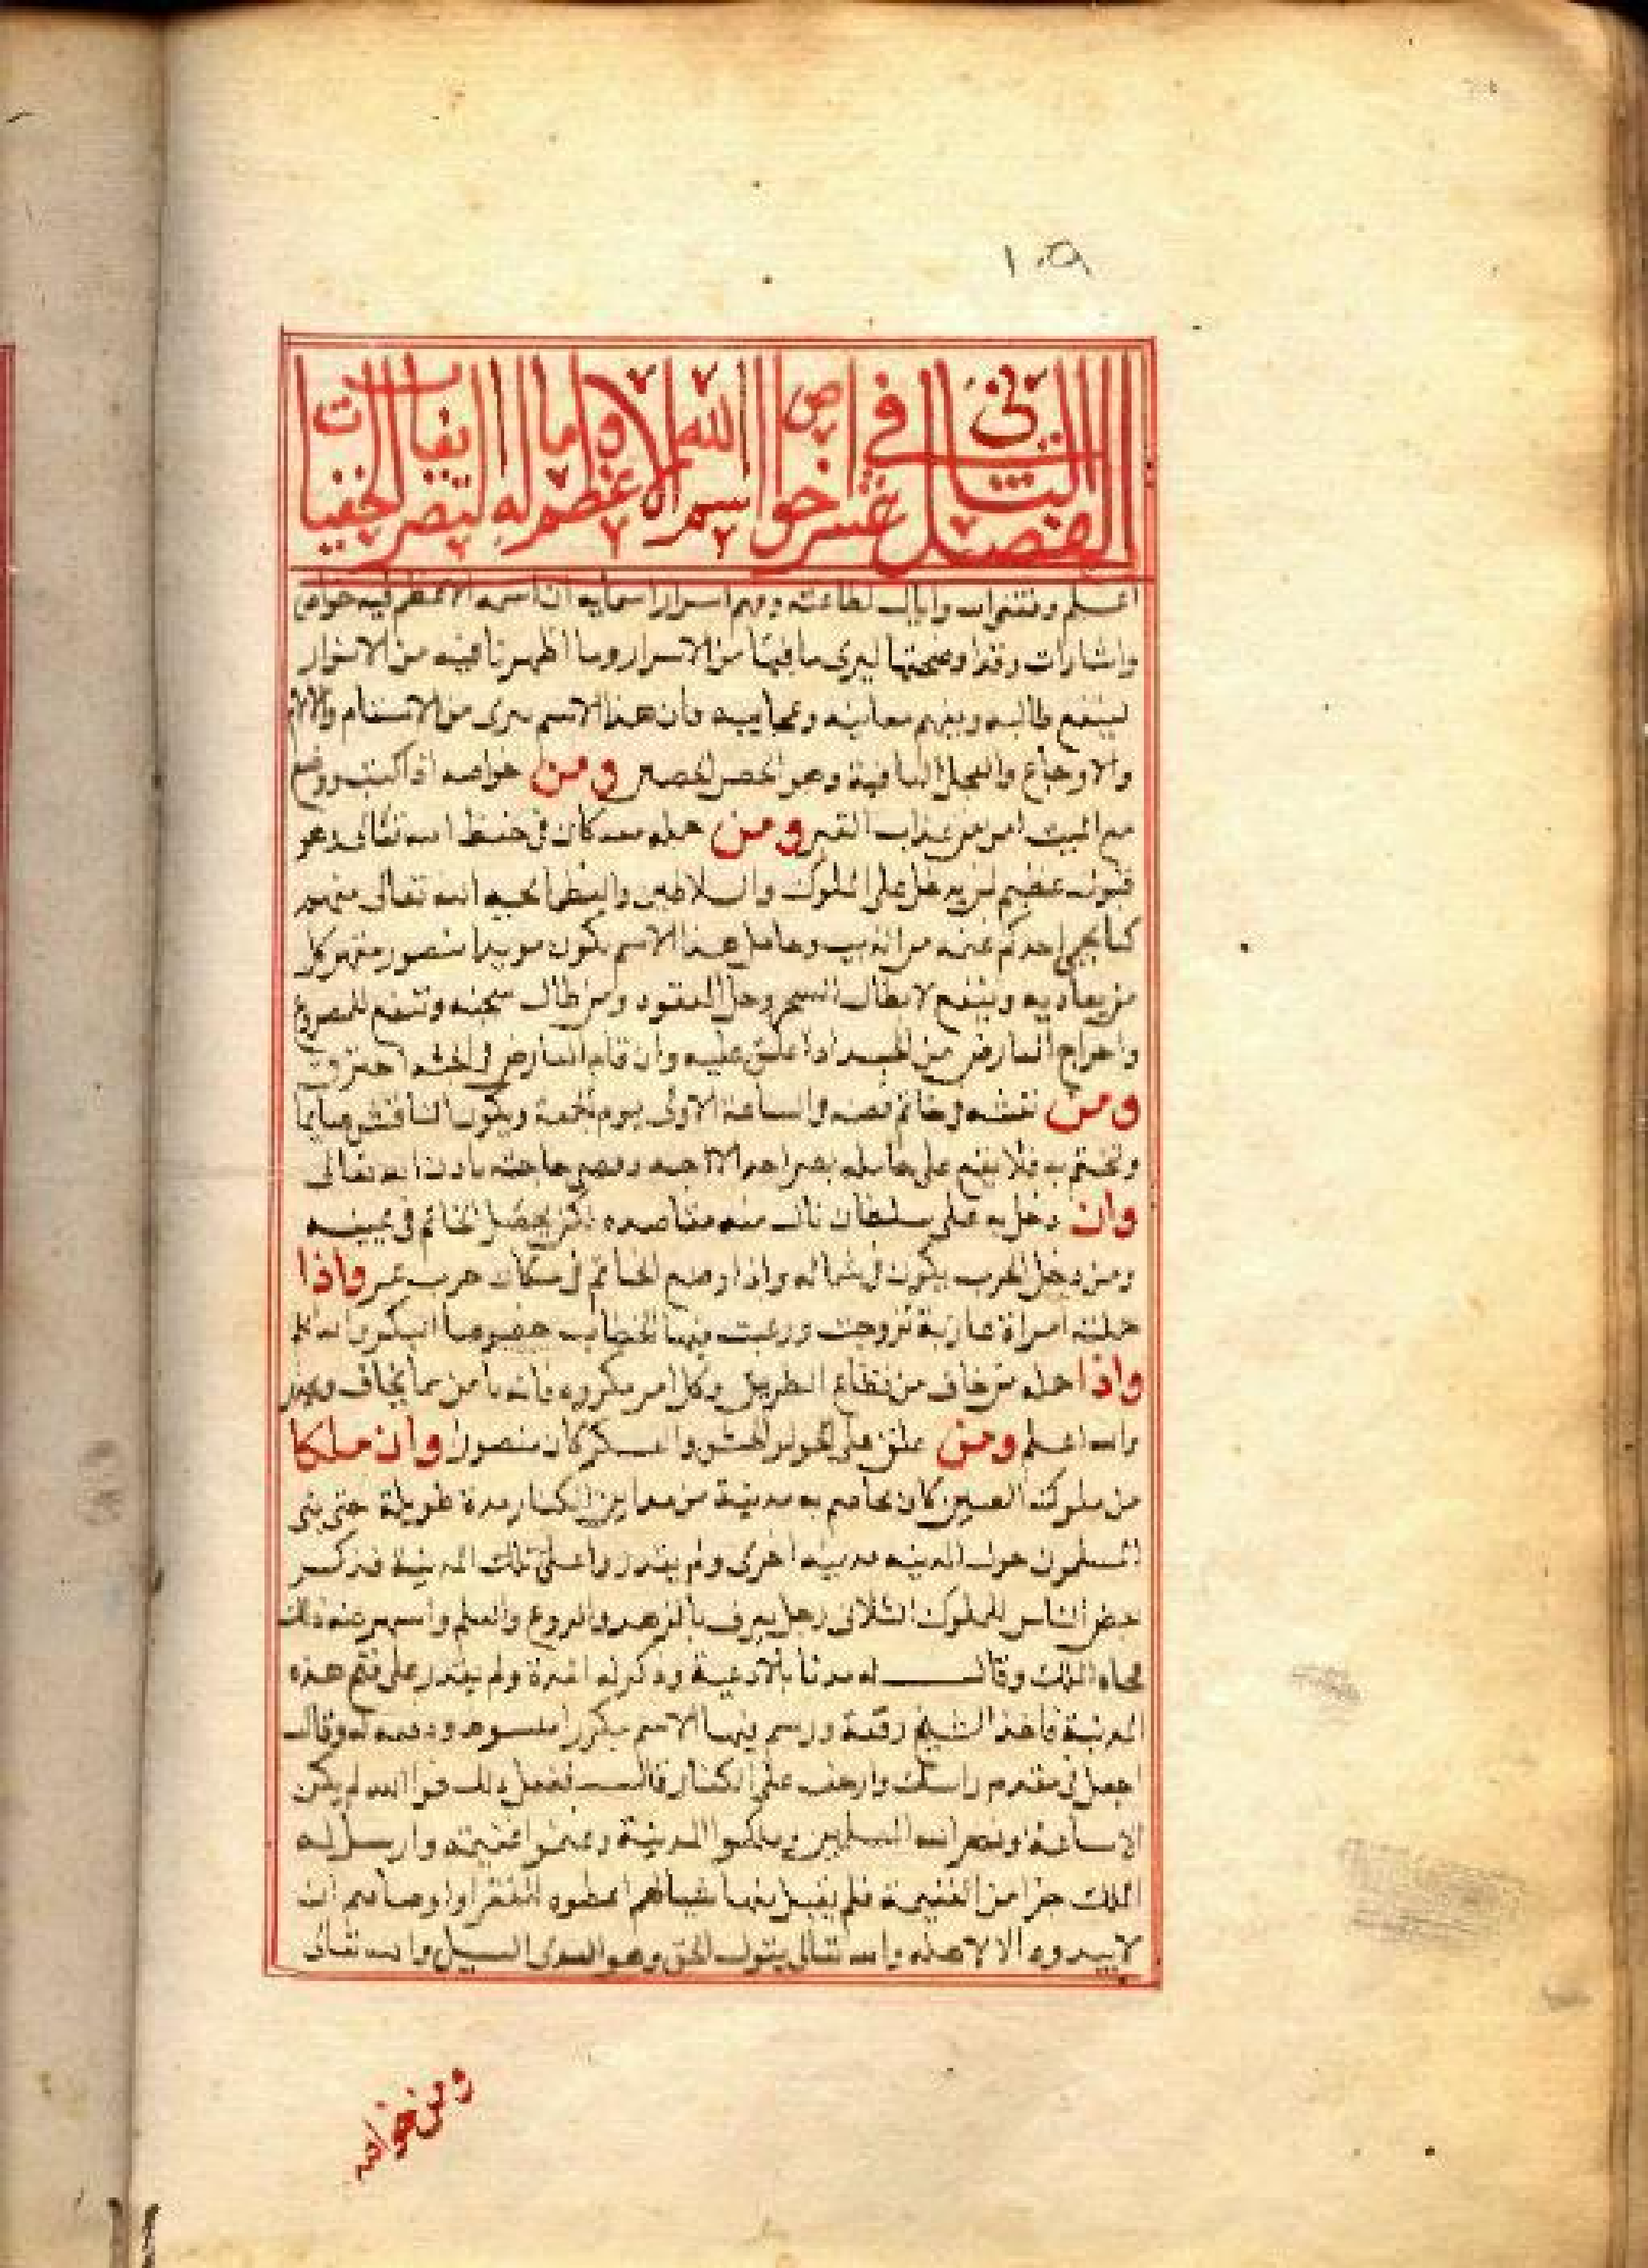 ١٠٥
الفصل الثاني عشر في خواص اسم الله الاعظم وما له
اعلم وفقني الله واياك لطاعته وفهم اسرار اسمايه ان اسمه الاعظم فيه خواص
واشارات وقد اوضحتها ليرى ما فيها من الاسرار وما اظهرنا فيه من الانوار
لينتفع طالبه ويفهم معانيه وعجايبه فان هذا الاسم يبرى من الاسقام والالام
والاوجاع وهو الحصن الحصين ومن خواصه اذا كتب ووضع
مع الميت امن من عذاب القبر ومن حمله معه كان في حفظ الله تعالى وهو
قبول عظيم لمن يدخل على الملوك والسلاطين والعظما يحميه الله تعالى منهم
كما يحمي احدكم غنمه من الذيب وحامل هذا الاسم يكون مويدا منصورا كل
من يعاديه وينفع لابطال السحر وحل المعقود ومن طال سجنه وينفع للمصروع
واخراج العارض من الجسد اذا علق عليه وان قام العارض في الجثه احترق
ومن نقشه في خاتم فضه في الساعة الاولى يوم الجمعة ويكون الناقش صايما
ويختم به فلا يقع على حامله بصر احد الا احبه وقضى حاجته باذن الله تعالى
وان دخل به على سلطان نال منه مقاصده لكن يجعل الخاتم في يمينه
ومن دخل الحرب يكون في شماله واذا وضع الخاتم في مكان خرب عمر واذا
حملته امراة عازبة تزوجت ورغبت فيها الخطاب خصوصا البكر والله اعلم
واذا حمله من خاف من قطاع الطريق وكل امر مكروه فانه يامن مما يخاف
والله اعلم ومن علق على الجيش والعسكر كان منصورا وان ملكا
من ملوك الصين كان يحاصر مدينة من مداين الكفار مدة طويلة حتى بنى
المسلمون حول المدينه مدينه اخرى ولم يقدروا على تلك المدينة فذكر
بعض الناس للملوك رجل يعرف بالزهد والورع والعلم واشتهر عنه ذلك
فجاه الملك وقال له مدنا بالادعية وذكر له المدة ولم يقدر على فتح هذه
المدينة فاخذ الشيخ رقعة ورسم فيها الاسم مكررا ودفعه له وقال
اجعل في مقدم راسك وازحف على الكفار قال ففعل ذلك فوالله لم يكن
الا ساعة ونصر الله المسلمين وملكوا المدينة وغنموا غنيمه وارسل له
الملك جزا من الغنيمة فلم يقبل منها شيا ثم اعطوه للفقرا واوصاهم ان
لا يبدوه الا لاهله والله تعالى يقول الحق وهو يهدى السبيل والله تعالى
ومن خواصه